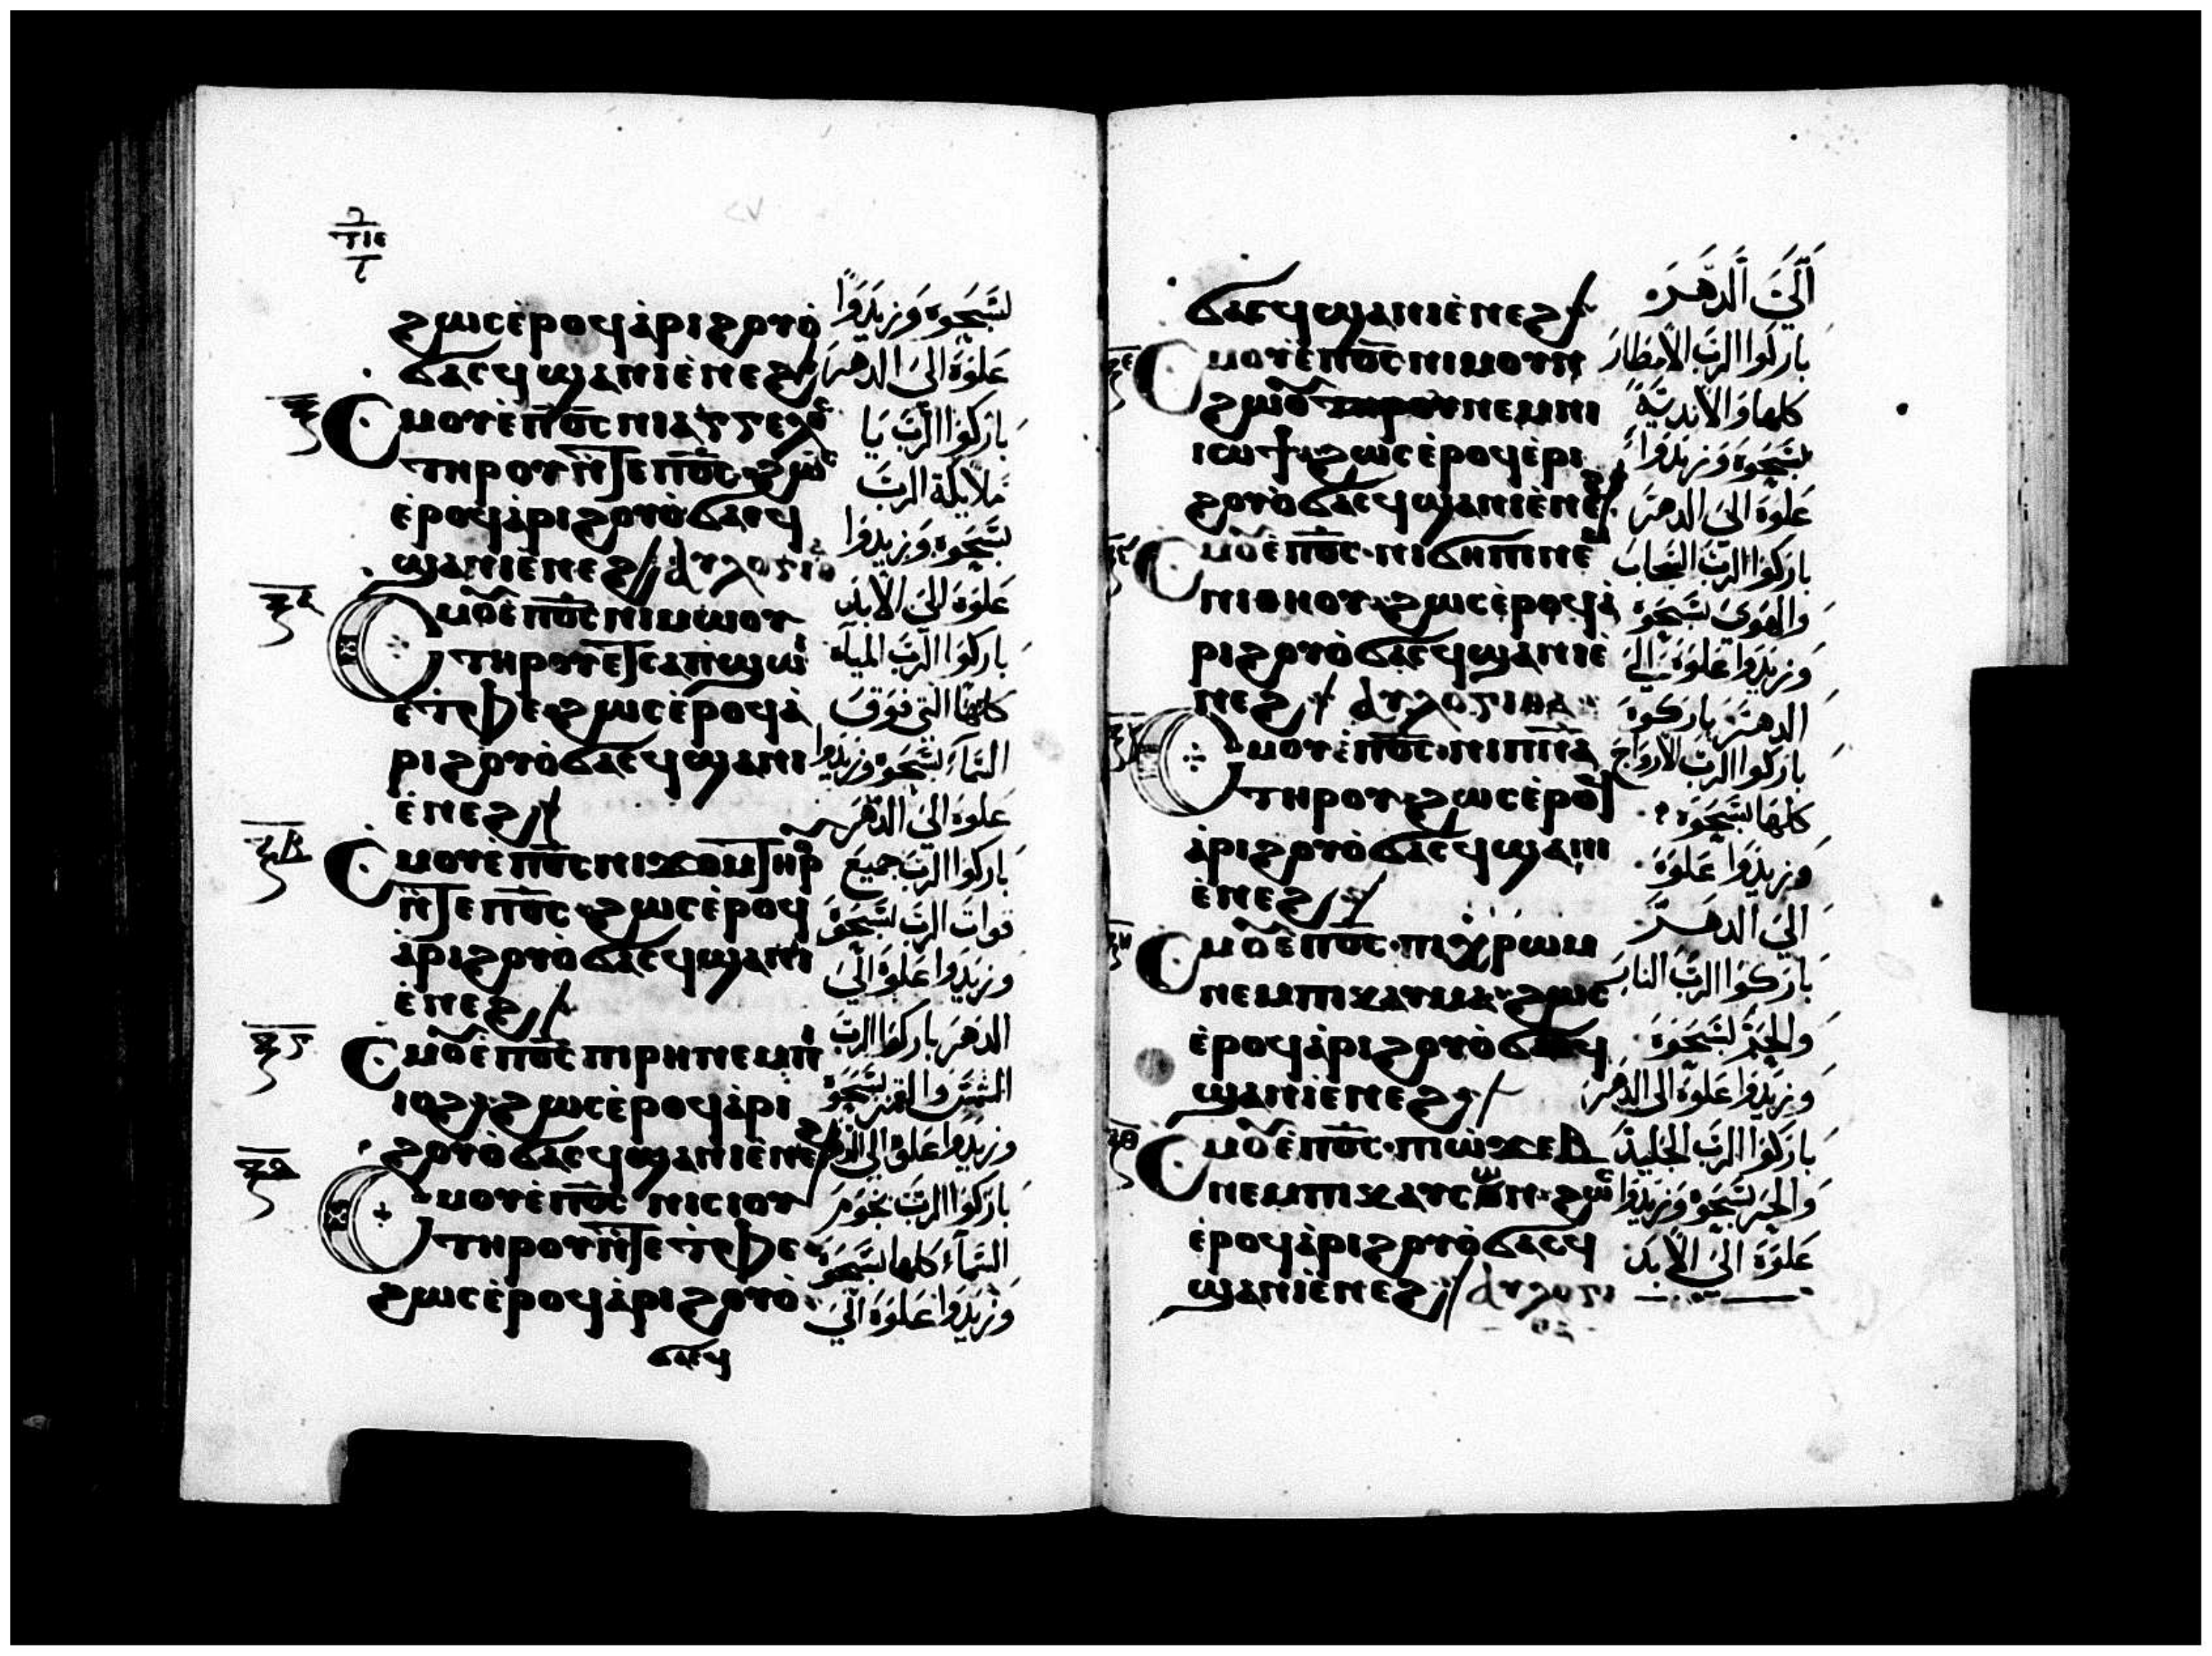 ϩⲱⲥ ⲉ̀ⲣⲟϥ ⲁ̀ⲣⲓϩⲟⲩⲟ̀
ϭⲁⲥϥ ϣⲁ ⲛⲓⲉ̀ⲛⲉϩ
ⲝ̅
Ⲥⲙⲟⲩ ⲉ̀ⲡⲟ̅ⲥ̅ ⲛⲓⲁⲅⲅⲉⲗⲟⲥ
ⲧⲏⲣⲟⲩ ⲛ̀ⲧⲉ ⲡⲟ̅ⲥ̅ ϩⲱⲥ
ⲉ̀ⲣⲟϥ ⲁ̀ⲣⲓϩⲟⲩⲟ̀ ϭⲁⲥϥ
ϣⲁ ⲛⲓⲉ̀ⲛⲉϩ
ⲝ̅ⲁ̅
Ⲥⲙⲟⲩ ⲉ̀ⲡⲟ̅ⲥ̅ ⲛⲓⲙⲱⲟⲩ
ⲧⲏⲣⲟⲩ ⲉⲧⲥⲁⲡϣⲱⲓ
ⲉ̀ⲧⲫⲉ ϩⲱⲥ ⲉ̀ⲣⲟϥ ⲁ̀
ⲣⲓϩⲟⲩⲟ̀ ϭⲁⲥϥ ϣⲁ ⲛⲓ
ⲉ̀ⲛⲉϩ
ⲝ̅ⲃ̅
Ⲥⲙⲟⲩ ⲉ̀ⲡⲟ̅ⲥ̅ ⲛⲓϫⲟⲙ ⲧⲏⲣ
ⲛ̀ⲧⲉ ⲡⲟ̅ⲥ̅ ϩⲱⲥ ⲉ̀ⲣⲟϥ
ⲁ̀ⲣⲓϩⲟⲩⲟ̀ ϭⲁⲥϥ ϣⲁ ⲛⲓ
ⲉ̀ⲛⲉϩ
ⲝ̅ⲅ̅
Ⲥⲙⲟⲩ ⲉ̀ⲡⲟ̅ⲥ̅ ⲡⲓⲣⲏ ⲛⲉⲙ ⲡⲓ
ⲓⲟϩ ϩⲱⲥ ⲉ̀ⲣⲟϥ ⲁ̀ⲣⲓ
ϩⲟⲩⲟ̀ ϭⲁⲥϥ ϣⲁ ⲛⲓⲉ̀ⲛⲉϩ
ⲝ̅ⲇ̅
Ⲥⲙⲟⲩ ⲉ̀ⲡⲟ̅ⲥ̅ ⲛⲓⲥⲓⲟⲩ
ⲧⲏⲣⲟⲩ ⲛ̀ⲧⲉ ⲧⲫⲉ
ϩⲱⲥ ⲉ̀ⲣⲟϥ ⲁ̀ⲣⲓϩⲟⲩⲟ̀
ϭⲁⲥϥ
لسبحوه وزيدوا
علوه الى الدهر
باركوا الرب يا
ملايكة الرب
سبحوه وزيدوا
علوه الى الابد
باركوا الرب المياه
كلها التي فوق
السماء لسبحوه وزيدوا
علوه الى الدهر
باركوا الرب جميع
قوات الرب لسبحوه
وزيدوا علوه الى
الدهر باركوا الرب
الشمس والقمر لسبحوه
وزيدوا علوه الى الدهر
باركوا الرب نجوم
السماء كلها لسبحوه
وزيدوا علوه الى
ϭⲁⲥϥ ϣⲁ ⲛⲓⲉ̀ⲛⲉϩ
ⲝ̅ⲉ̅
Ⲥⲙⲟⲩ ⲉ̀ⲡⲟ̅ⲥ̅ ⲛⲓⲙⲟⲩⲛ
ϩⲱⲟⲩ ⲛⲉⲙ ⲛⲓ
ⲓⲱϯ ϩⲱⲥ ⲉ̀ⲣⲟϥ ⲉ̀ⲣⲓ
ϩⲟⲩⲟ̀ ϭⲁⲥϥ ϣⲁ ⲛⲓⲉ̀ⲛⲉϩ
Ⲥⲙⲟⲩ ⲉ̀ⲡⲟ̅ⲥ̅ ⲛⲓϭⲏⲡⲓ ⲛⲉⲙ
ⲛⲓⲑⲏⲟⲩ ϩⲱⲥ ⲉ̀ⲣⲟϥ ⲁ̀
ⲣⲓϩⲟⲩⲟ̀ ϭⲁⲥϥ ϣⲁ ⲛⲓⲉ̀
ⲛⲉϩ
Ⲥⲙⲟⲩ ⲉ̀ⲡⲟ̅ⲥ̅ ⲛⲓⲡ̅ⲛ̅ⲁ̅
ⲧⲏⲣⲟⲩ ϩⲱⲥ ⲉ̀ⲣⲟϥ
ⲁ̀ⲣⲓϩⲟⲩⲟ̀ ϭⲁⲥϥ ϣⲁ ⲛⲓ
ⲉ̀ⲛⲉϩ
ⲝ̅ⲏ̅
Ⲥⲙⲟⲩ ⲉ̀ⲡⲟ̅ⲥ̅ ⲡⲓⲭⲣⲱⲙ
ⲛⲉⲙ ⲡⲓⲕⲁⲩⲙⲁ ϩⲱⲥ
ⲉ̀ⲣⲟϥ ⲁ̀ⲣⲓϩⲟⲩⲟ̀ ϭⲁⲥϥ
ϣⲁ ⲛⲓⲉ̀ⲛⲉϩ
ⲝ̅ⲑ̅
Ⲥⲙⲟⲩ ⲉ̀ⲡⲟ̅ⲥ̅ ⲡⲓⲱ̀ϫⲉⲃ
ⲛⲉⲙ ⲡⲓⲕⲁⲩⲥⲱⲛ ϩⲱⲥ
ⲉ̀ⲣⲟϥ ⲁ̀ⲣⲓϩⲟⲩⲟ̀ ϭⲁⲥϥ
ϣⲁ ⲛⲓⲉ̀ⲛⲉϩ
الى الدهر
باركوا الرب الامطار
كلها والاندية
لسبحوه وزيدوا
علوه الى الدهر
باركوا الرب السحاب
والهوى لسبحوه
وزيدوا علوه الى
الدهر باركوه
باركوا الرب الارواح
كلها لسبحوه
وزيدوا علوه
الى الدهر
باركوا الرب النار
والحر لسبحوه
وزيدوا علوه الى الدهر
باركوا الرب الجليد
والحر لسبحوه وزيدوا
علوه الى الابد